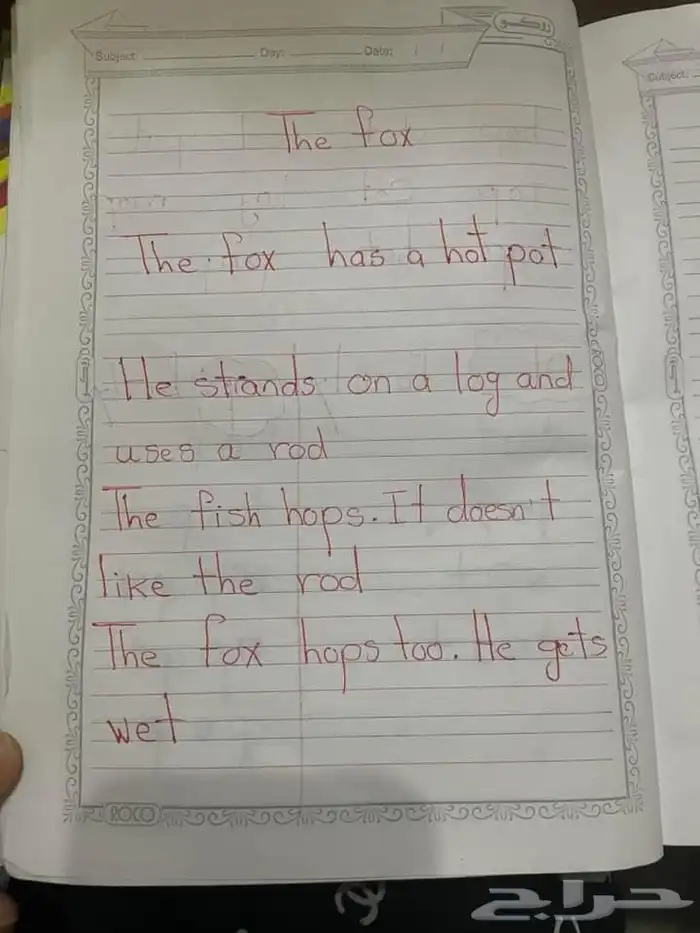 روكو
Subject: Day: Date: / /
Subject:
The fox
The fox has a hot pot
He stands on a log and
uses a rod
The fish hops. It doesn't
like the rod
The fox hops too. He gets
wet
ROCO
ROCO
حراج